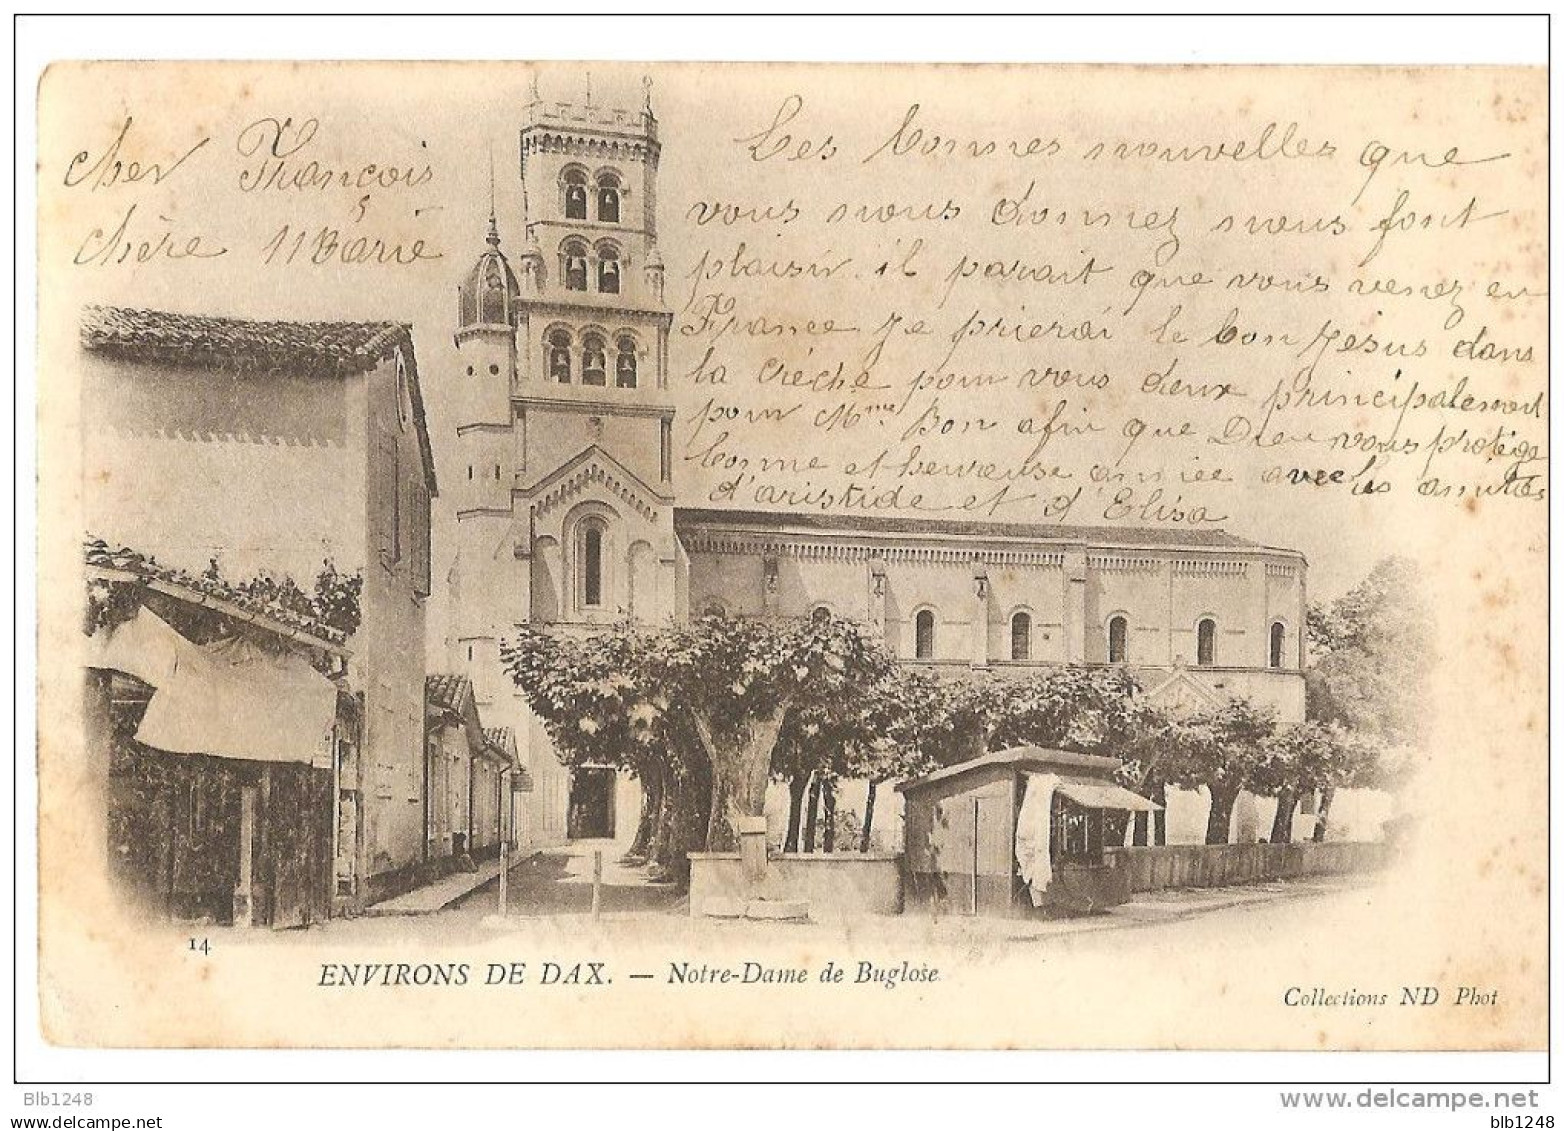 cher François
chère Marie
Les bonnes nouvelles que
vous nous donnez nous font
plaisir. il parait que vous venez en
France Je prierai le bon Jésus dans
la créche pour vous deux principalement
pour Mme Bon afin que Dieu vous protège
bonne et heureuse année avec les amitiés
d'aristide et d'Elisa
14
ENVIRONS DE DAX. — Notre-Dame de Buglose
Collections ND Phot
Blb1248
www.delcampe.net
blb1248
blb1248